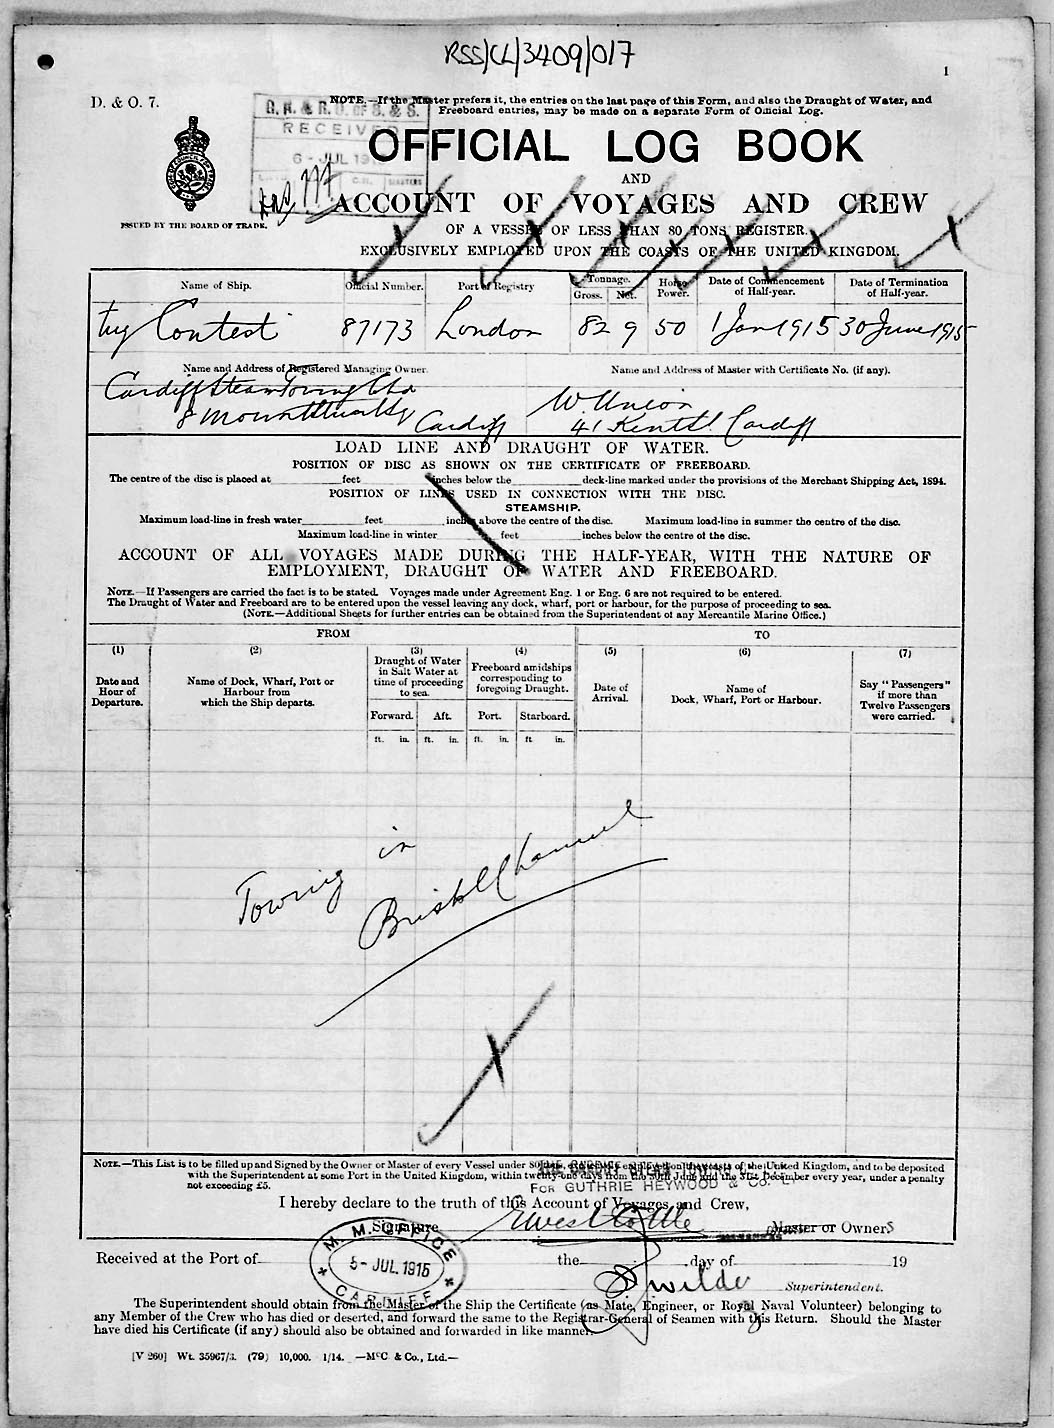 RSS/CL/3409/017
1
D. & O. 7.
NOTE.—If the Master prefers it, the entries on the last page of this Form, and also the Draught of Water, and
Freeboard entries, may be made on a separate Form of Official Log.
RECEIVED
6 - JUL 19
OFFICIAL LOG BOOK
AND
ACCOUNT OF VOYAGES AND CREW
ISSUED BY THE BOARD OF TRADE.
OF A VESSEL OF LESS THAN 80 TONS REGISTER.
EXCLUSIVELY EMPLOYED UPON THE COASTS OF THE UNITED KINGDOM.
Name of Ship. Official Number. Port of Registry Tonnage. Gross. Net. Horse Power. Date of Commencement of Half-year. Date of Termination of Half-year.
Tug Contest 87173 London 82 9 50 1 Jan 1915 30 June 1915
Name and Address of Registered Managing Owner. Name and Address of Master with Certificate No. (if any).
Cardiff Steam Towing Co Ltd W. Union
8 Mount Stuart Sq Cardiff 41 Kent St Cardiff
LOAD LINE AND DRAUGHT OF WATER.
POSITION OF DISC AS SHOWN ON THE CERTIFICATE OF FREEBOARD.
The centre of the disc is placed at feet inches below the deck-line marked under the provisions of the Merchant Shipping Act, 1894.
POSITION OF LINES USED IN CONNECTION WITH THE DISC.
STEAMSHIP.
Maximum load-line in fresh water feet inches above the centre of the disc. Maximum load-line in summer the centre of the disc.
Maximum load-line in winter feet inches below the centre of the disc.
ACCOUNT OF ALL VOYAGES MADE DURING THE HALF-YEAR, WITH THE NATURE OF
EMPLOYMENT, DRAUGHT OF WATER AND FREEBOARD.
NOTE.—If Passengers are carried the fact is to be stated. Voyages made under Agreement Eng. 1 or Eng. 6 are not required to be entered.
The Draught of Water and Freeboard are to be entered upon the vessel leaving any dock, wharf, port or harbour, for the purpose of proceeding to sea.
(NOTE.—Additional Sheets for further entries can be obtained from the Superintendent of any Mercantile Marine Office.)
FROM TO
(1) (2) (3) (4) (5) (6) (7)
Date and Hour of Departure.
Name of Dock, Wharf, Port or Harbour from which the Ship departs.
Draught of Water in Salt Water at time of proceeding to sea.
Freeboard amidships corresponding to foregoing Draught.
Date of Arrival.
Name of Dock, Wharf, Port or Harbour.
Say "Passengers" if more than Twelve Passengers were carried.
Forward. Aft. Port. Starboard.
ft. in. ft. in. ft. in. ft in.
Towing in
Bristol Channel
NOTE.—This List is to be filled up and Signed by the Owner or Master of every Vessel under 80 tons, exclusively employed on the coasts of the United Kingdom, and to be deposited
with the Superintendent at some Port in the United Kingdom, within twenty-one days from the 30th June and the 31st December every year, under a penalty
not exceeding £5.
FOR GUTHRIE HEYWOOD & CO. L
I hereby declare to the truth of this Account of Voyages and Crew,
Signature Master or Owners
Received at the Port of the day of 19
M. M. OFFICE
5 - JUL 1915
CARDIFF
Wilde Superintendent.
The Superintendent should obtain from the Master of the Ship the Certificate (as Mate, Engineer, or Royal Naval Volunteer) belonging to
any Member of the Crew who has died or deserted, and forward the same to the Registrar-General of Seamen with this Return. Should the Master
have died his Certificate (if any) should also be obtained and forwarded in like manner.
[V 260] Wt. 35967/3. (79) 10,000. 1/14. —McC & Co., Ltd.—